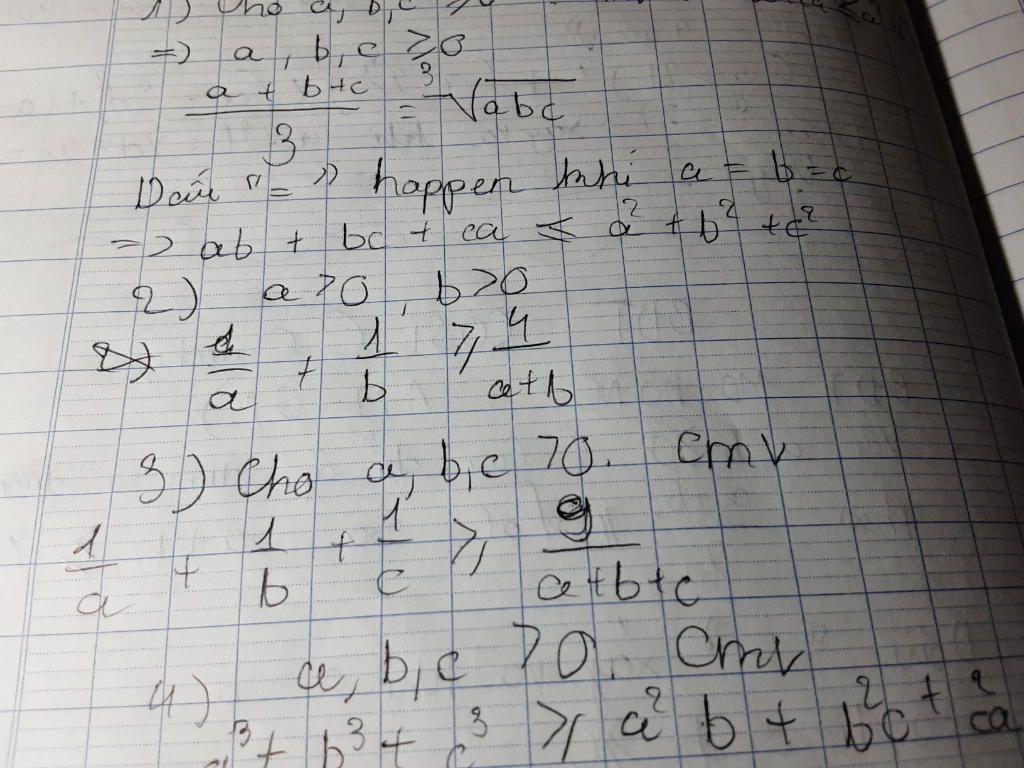 1) Cho a, b, c ≥ 0
=> a, b, c ≥ 0
(a + b + c)/3 = ∛(abc)
Dấu "=" happen khi a = b = c
=> ab + bc + ca ≤ a² + b² + c²
2) a > 0, b > 0
1/a + 1/b ≥ 4/(a+b)
3) Cho a, b, c > 0. Cmr
1/a + 1/b + 1/c ≥ 9/(a+b+c)
4) a, b, c > 0. Cmr
a³ + b³ + c³ ≥ a²b + b²c + c²a